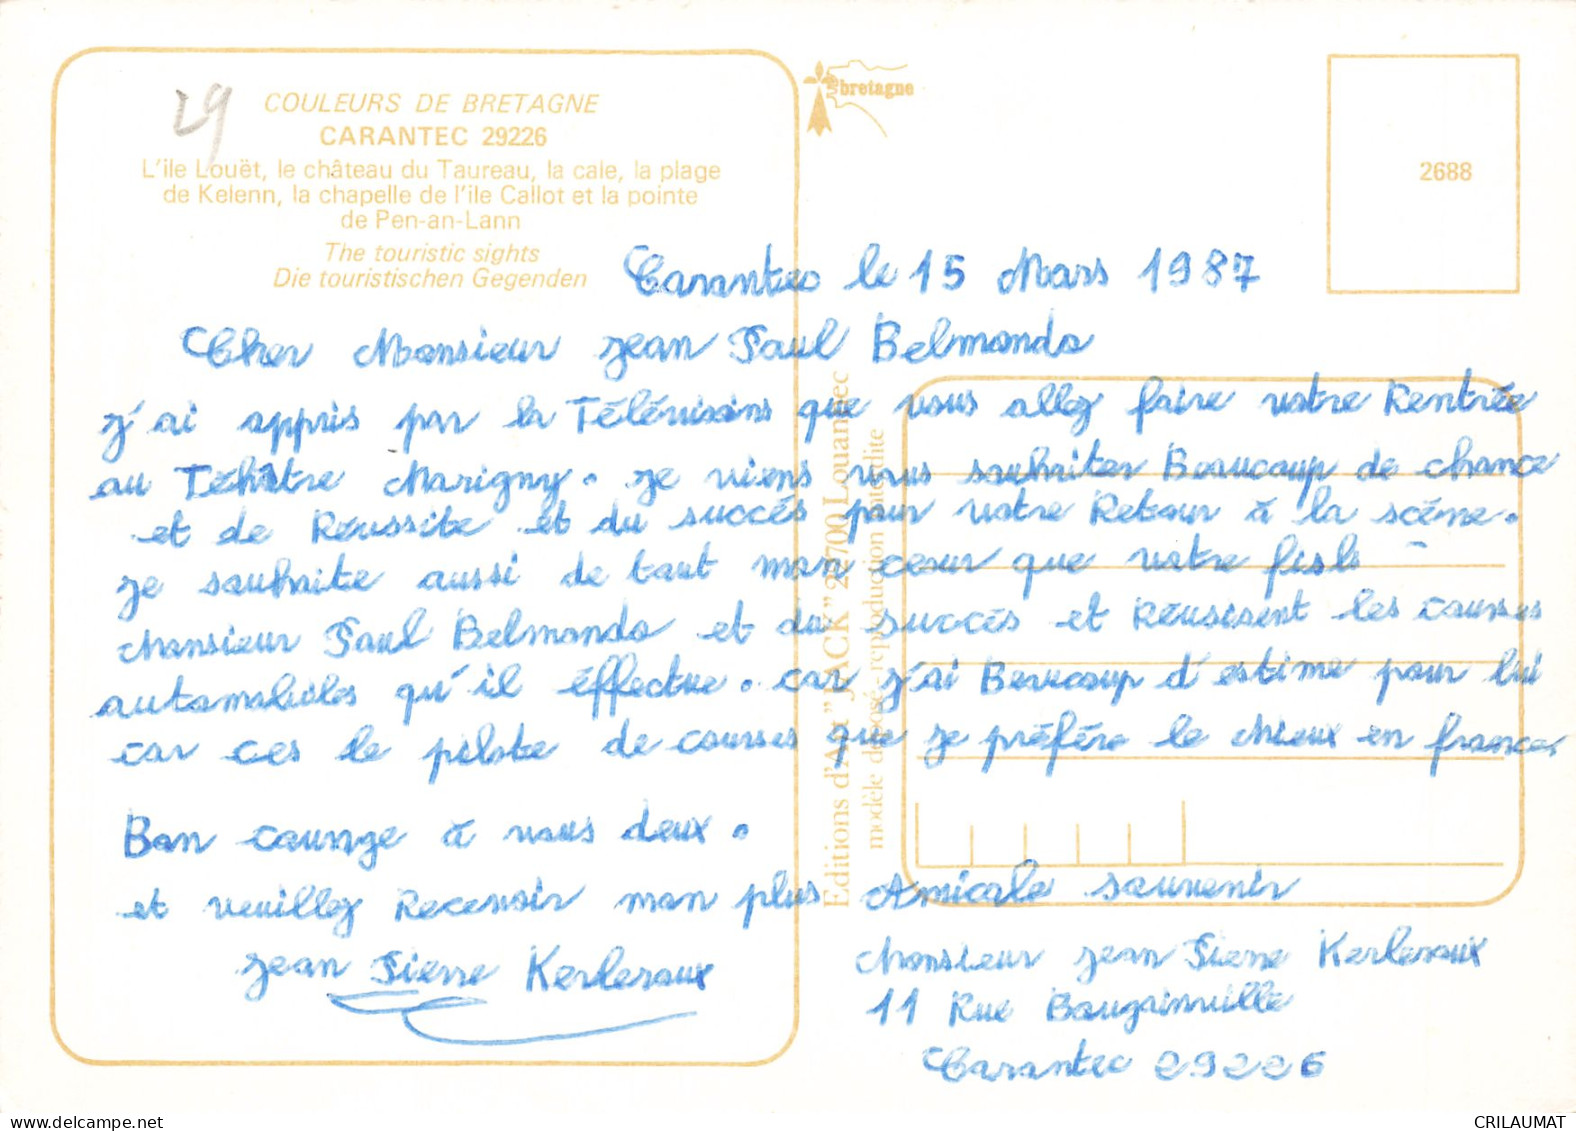 29
COULEURS DE BRETAGNE
CARANTEC 29226
L'ile Louët, le château du Taureau, la cale, la plage
de Kelenn, la chapelle de l'ile Callot et la pointe
de Pen-an-Lann
The touristic sights
Die touristischen Gegenden
bretagne
2688
Carantec le 15 Mars 1987
Cher Monsieur Jean Paul Belmondo
J'ai appris par la Télévisions que vous allez faire votre Rentrée
au Tehâtre Marigny. Je viens vous souhaiter Beaucoup de chance
et de Réussite et du succés pour votre Retour à la scéne.
Je souhaite aussi de tout mon coeur que votre fisls
Monsieur Paul Belmondo et du succés et Réusisent les courses
automobiles qu'il éffectue. car j'ai Beaucoup d'estime pour lui
car ces le pilote de courses que je préfére le Mieux en france.
Bon courage à vous deux.
et veuillez Recevoir mon plus Amicale souvenir
Jean Pierre Kerleroux
Monsieur Jean Pierre Kerleroux
11 Rue Bougainville
Carantec 29226
Editions d'Art "JACK" 22700 Louannec
modèle déposé - reproduction interdite
CRILAUMAT